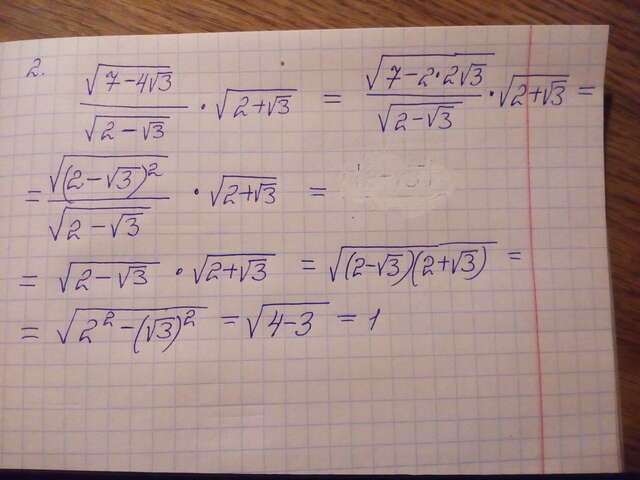 2. √(7-4√3) / √(2-√3) · √(2+√3) = √(7-2·2√3) / √(2-√3) · √(2+√3) =
= √((2-√3)²) / √(2-√3) · √(2+√3) =
= √(2-√3) · √(2+√3) = √((2-√3)(2+√3)) =
= √(2²-(√3)²) = √(4-3) = 1